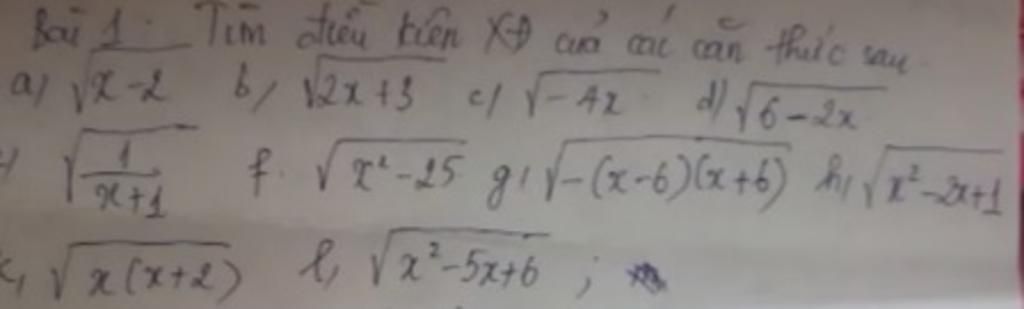 Bài 1. Tìm điều kiện XĐ của các căn thức sau.
a) √(x-2) b, √(2x+3) c) √(-4x) d) √(6-2x)
) √(1/(x+1)) f. √(x²-25) g, √(-(x-6)(x+6)) h, √(x²-2x+1)
, √(x(x+2)) l, √(x²-5x+6) ;